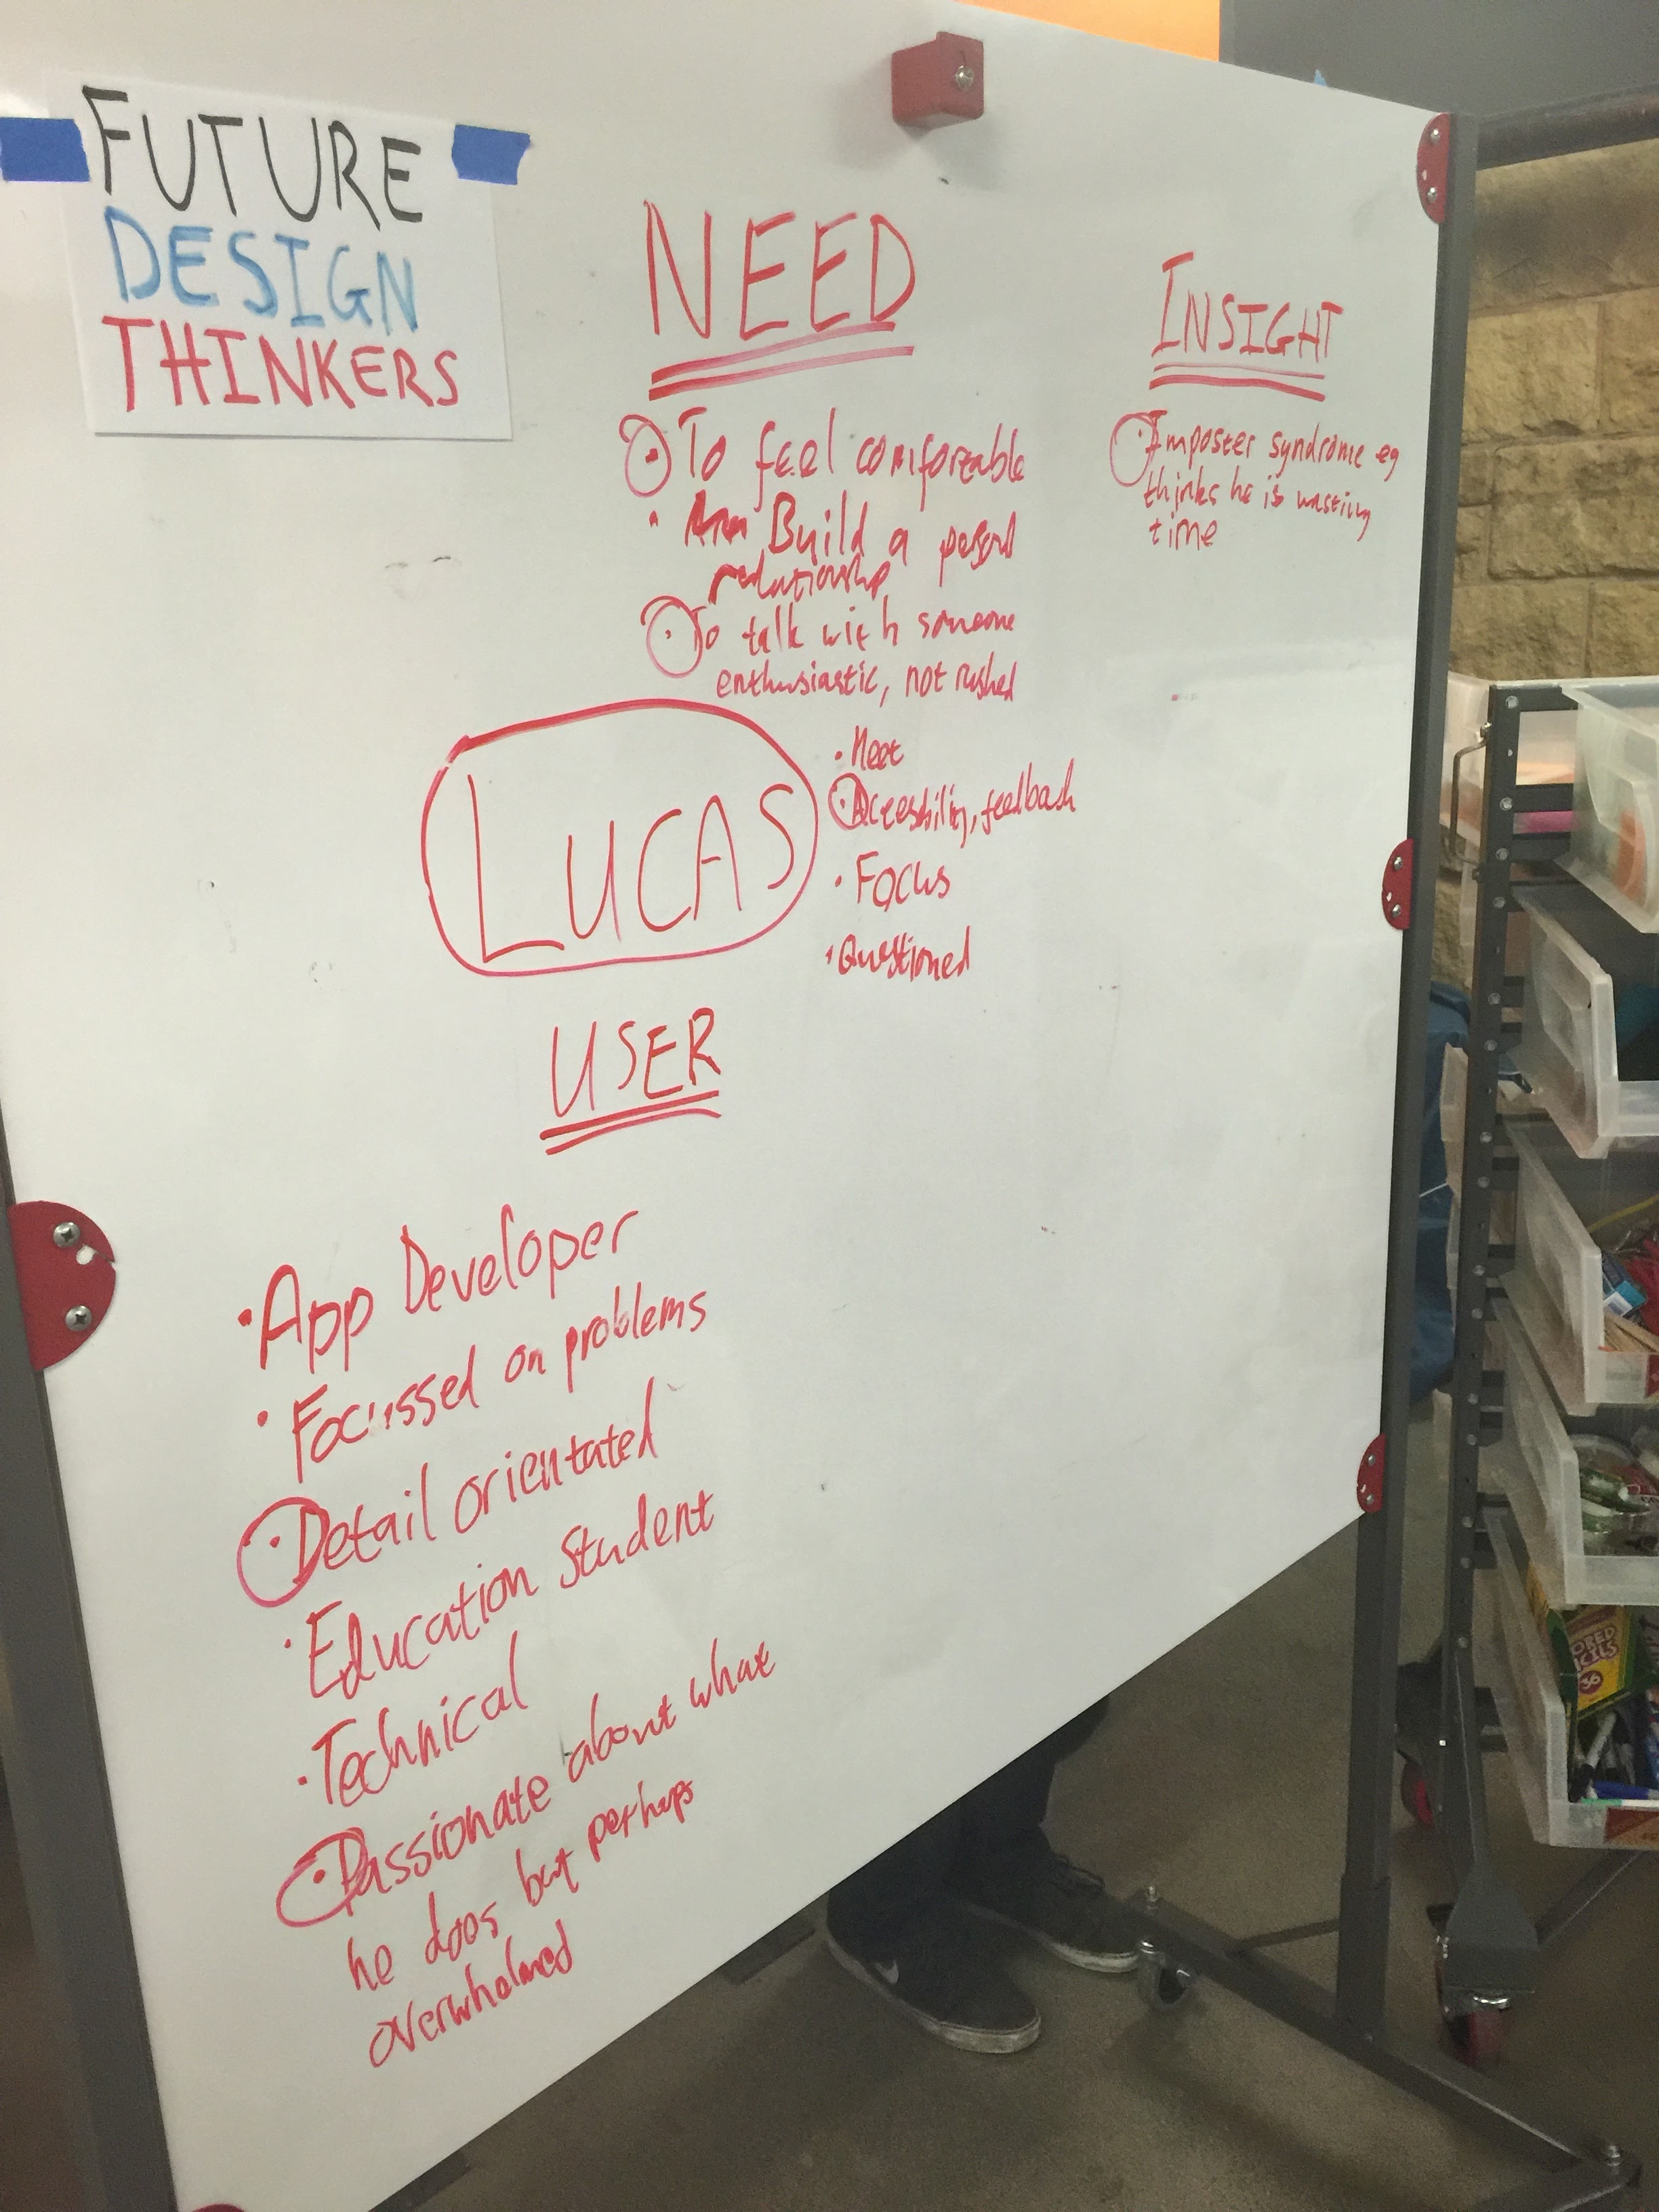 FUTURE
DESIGN
THINKERS
NEED
• To feel comfortable
• Build a personal
relationship
• To talk with someone
enthusiastic, not rushed
• Meet
• Accessibility, feedback
• Focus
• Questioned
INSIGHT
• Imposter syndrome eg
thinks he is wasting
time
LUCAS
USER
• App Developer
• Focussed on problems
• Detail orientated
• Education Student
• Technical
• Passionate about what
he does but perhaps
overwhelmed
36